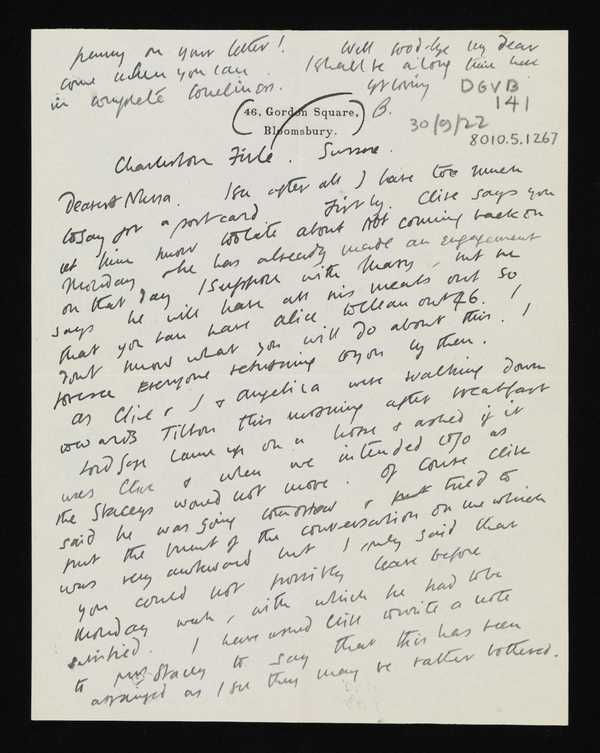 penny on your letter! Well good-bye my dear
come when you can. I shall be a long time here
in complete loneliness. Yr loving
B.
DGVB
141
30/9/22
8010.5.1267
(46, Gordon Square,
Bloomsbury.)
Charleston Firle. Sussex.
Dearest Nessa. I see after all I have too much
to say for a postcard Firstly. Clive says you
let him know too late about not coming back on
Monday he has already made an engagement
on that day I suppose with Mary, but he
says he will have all his meals out so
that you can have Alice to clean out 46. I
don't know what you will do about this. I
foresee everyone returning to you by then.
As Clive & I & Angelica were walking down
towards Tilton this morning after breakfast
Lord Gage came up on a horse & asked if it
was Clive & when we intended to go as
the Staceys would not move. Of course Clive
said he was going tomorrow & tried to
put the brunt of the conversation on me which
was very awkward but I only said that
you could not possibly leave before
Monday week, with which he had to be
satisfied. I have asked Clive to write a note
to Mrs Stacey to say that this has been
arranged as I see they may be rather bothered.